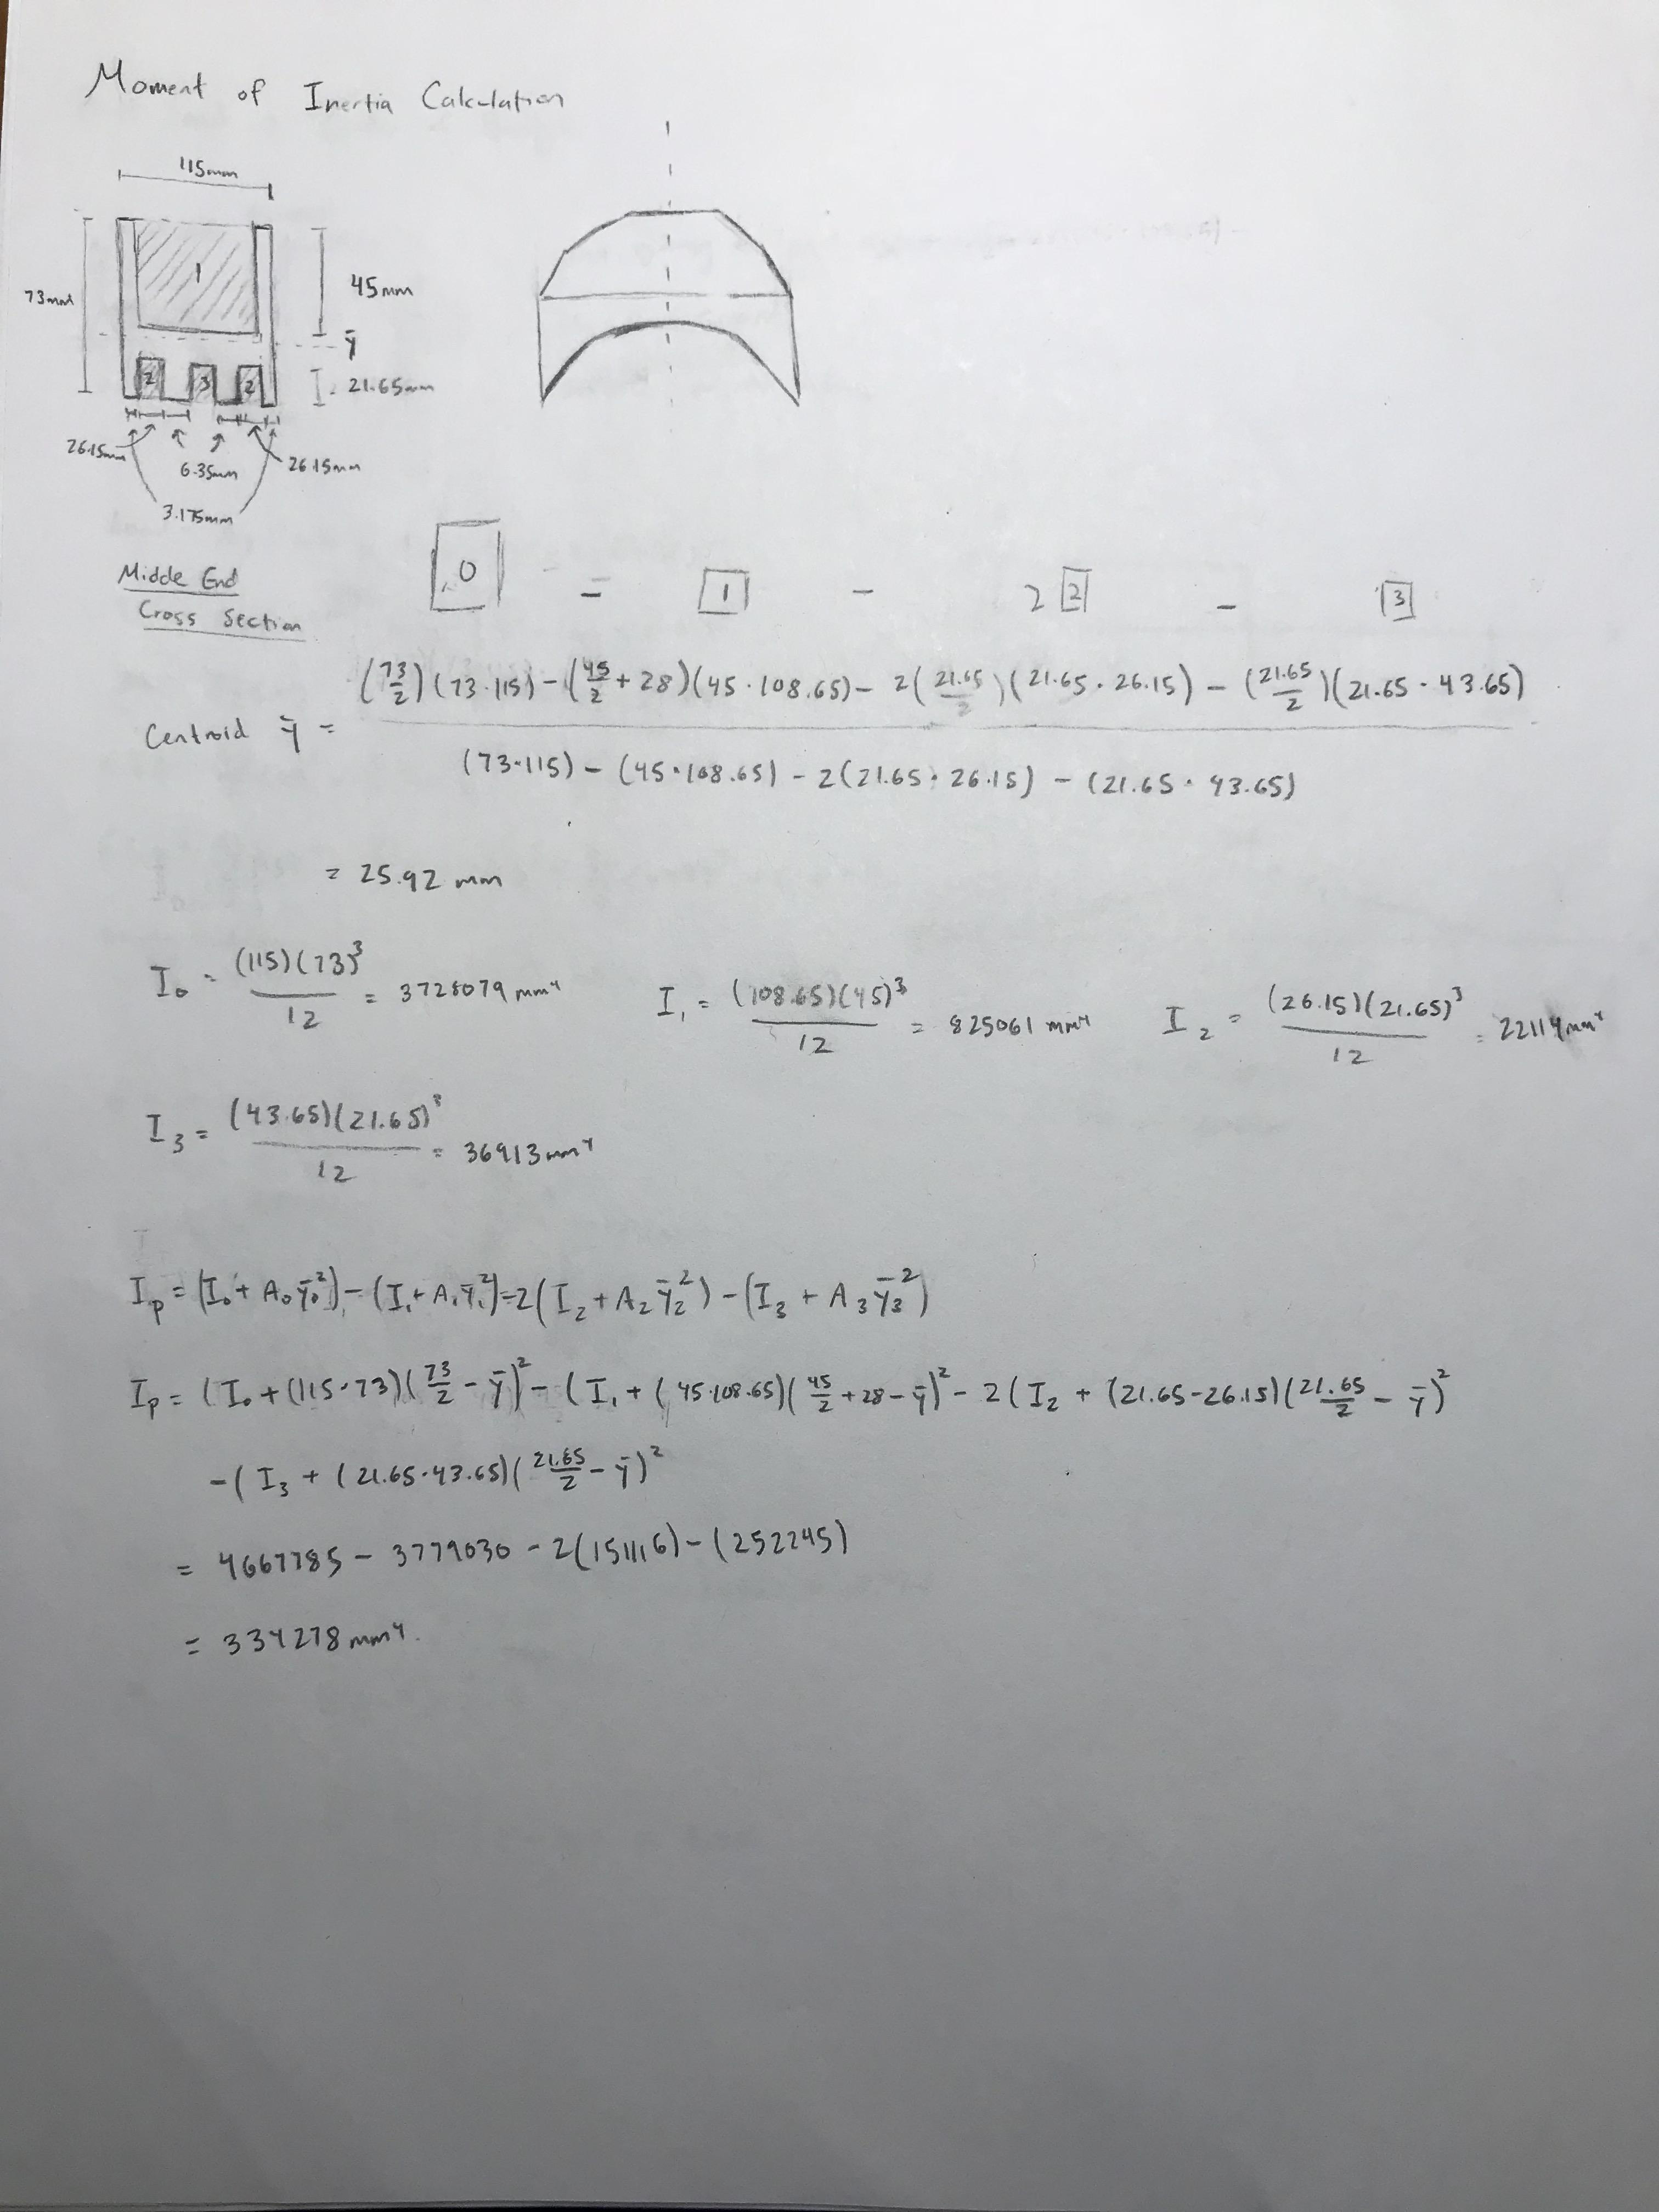 Moment of Inertia Calculation
115mm
1
73mm
45mm
ȳ
2 3 2
21.65mm
26.15mm
6.35mm
26.15mm
3.175mm
Middle End
Cross Section
0 = 1 - 2 2 - 3
Centroid ȳ = (73/2)(73·115) - (45/2 + 28)(45·108.65) - 2(21.65/2)(21.65·26.15) - (21.65/2)(21.65·43.65)
(73·115) - (45·108.65) - 2(21.65·26.15) - (21.65·43.65)
= 25.92 mm
I₀ = (115)(73)³/12 = 3728079 mm⁴ I₁ = (108.65)(45)³/12 = 825061 mm⁴ I₂ = (26.15)(21.65)³/12 = 22114 mm⁴
I₃ = (43.65)(21.65)³/12 = 36913 mm⁴
Ip = (I₀ + A₀ȳ₀²) - (I₁ + A₁ȳ₁²) - 2(I₂ + A₂ȳ₂²) - (I₃ + A₃ȳ₃²)
Ip = (I₀ + (115·73)(73/2 - ȳ)² - (I₁ + (45·108.65)(45/2 + 28 - ȳ)² - 2(I₂ + (21.65·26.15)(21.65/2 - ȳ)²
-(I₃ + (21.65·43.65)(21.65/2 - ȳ)²
= 4667785 - 3779030 - 2(151116) - (252245)
= 334278 mm⁴.